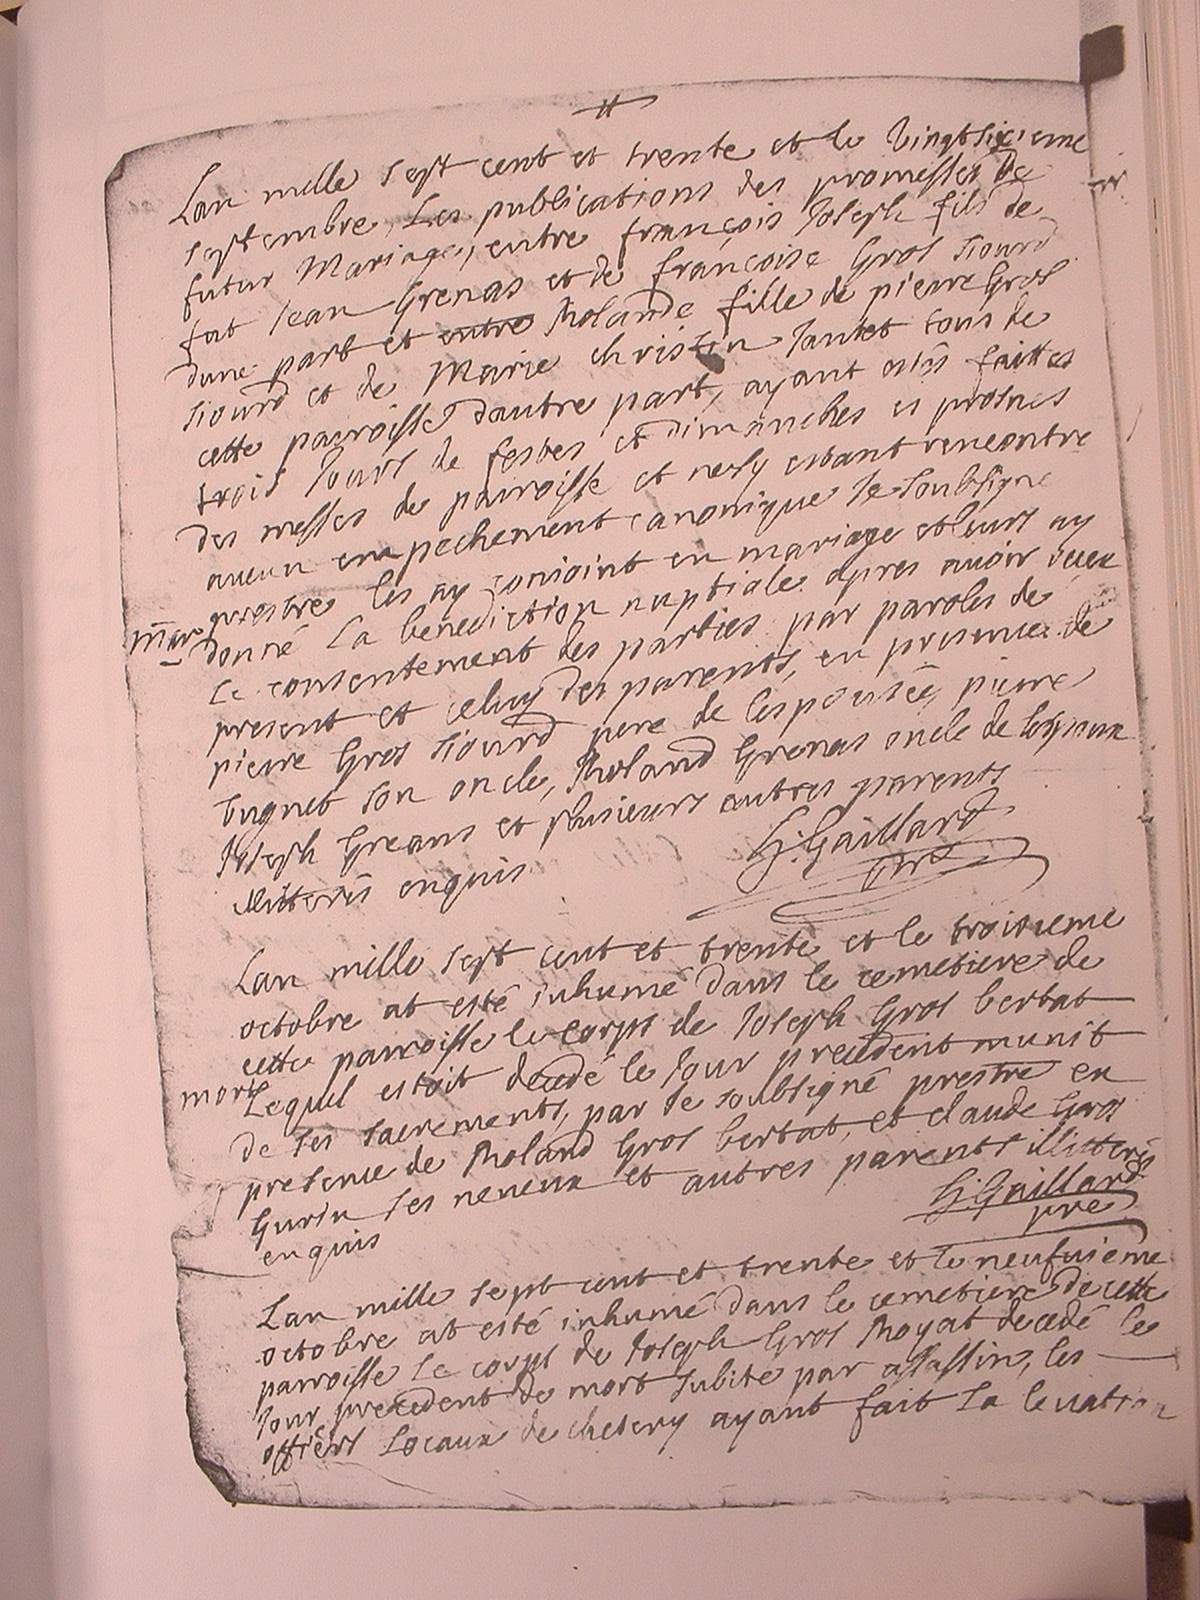 Lan mille sept cent et trente et le vingtsixieme
septembre, Les publications des promesses de
futur Mariage, entre françois Joseph fils de
fut Jean Grenas et de françoise Gros Jiourd
dune part et entre Rolande fille de pierre Gros
Jiourd et de Marie christin Jantet tous de
cette parroisse dautre part, ayant estés faittes
trois Jours de festes et dimanches es prosnes
des messes de parroisse et nesy estant rencontre
aucun empechement canonique Je soubsigne
prestre les ay conioint en mariage et leurs ay
mar
donné La benediction nuptiale apres avoir receu
Le consentement des parties par paroles de
present et celuy des parents, en presence de
pierre Gros Jiourd pere de lespousée, pierre
tugnet son oncle, Roland Grenas oncle de lespoux
Joseph Greans et plusieurs autres parents
illiterés enquis
G: Gaillard
pre
Lan mille sept cent et trente et le troisieme
octobre at esté inhumé dans le cemetiere de
cette parroisse le corps de Joseph Gros bertat
mort
Lequel estoit decedé le Jour precedent munit
de ses sacrements, par Je soubsigné prestre en
presence de Roland Gros bertat, et claude Gros
Gurin ses neveux et autres parents illitterés
enquis
G: Gaillard
pre
Lan mille sept cent et trente et le neufuieme
octobre at esté inhumé dans le cemetiere de cette
parroisse Le corps de Joseph Gros Royat decedé le
Jour precedent de mort subite par assassin, les
offiers Locaux de chesery ayant fait la levation